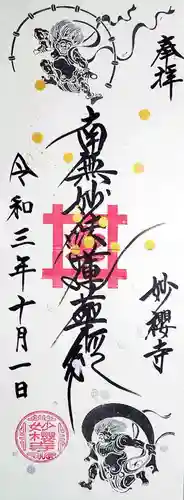 奉拝
南無妙法蓮華経
妙櫻寺
令和三年十月一日